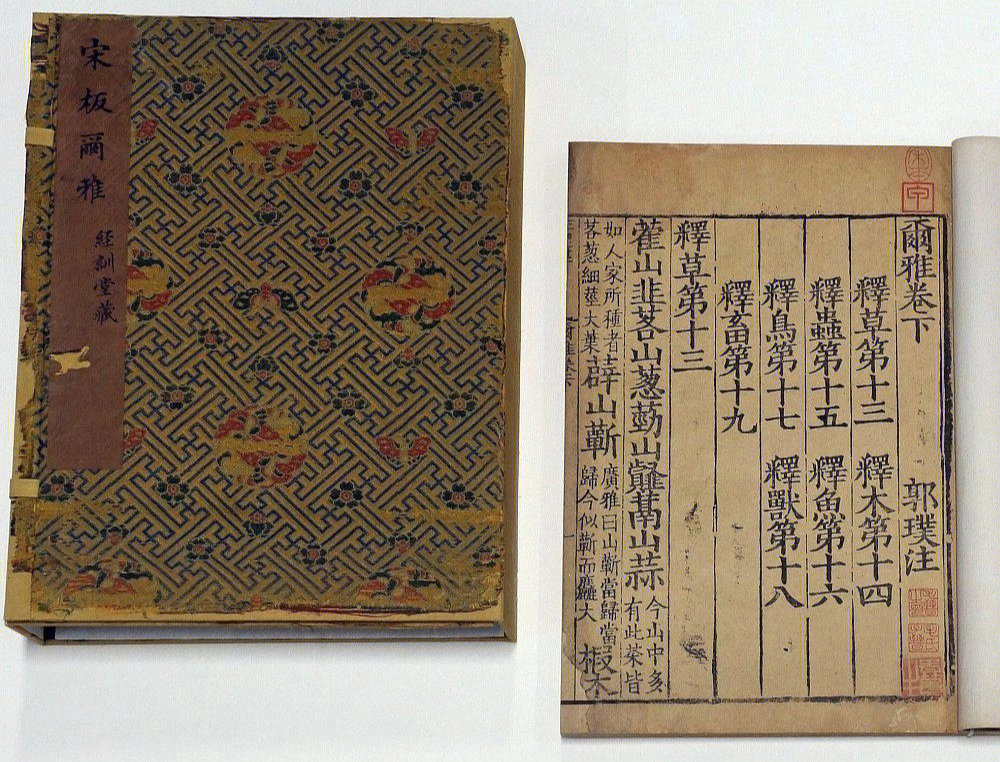 宋板爾雅
經訓堂藏
爾雅卷下 郭璞注
釋草第十三 釋木第十四
釋蟲第十五 釋魚第十六
釋鳥第十七 釋獸第十八
釋畜第十九
釋草第十三
藿山韭茖山葱葝山䪥蒚山蒜今山中多有此菜皆
如人家所種者茖葱細莖大葉薜山蘄廣雅曰山蘄當歸當歸今似蘄而麤大椴木